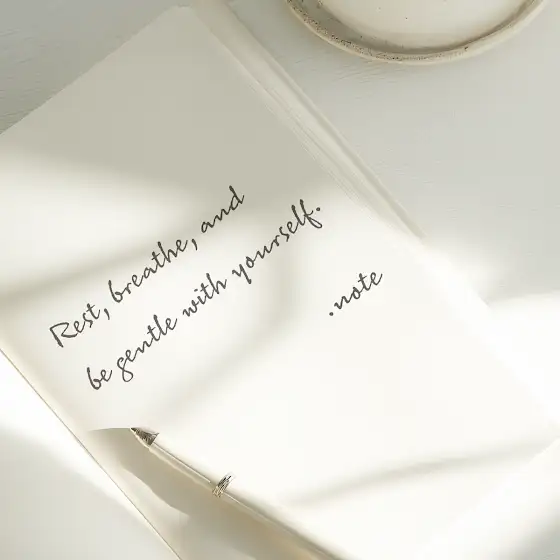 Rest, breathe, and
be gentle with yourself.
.note